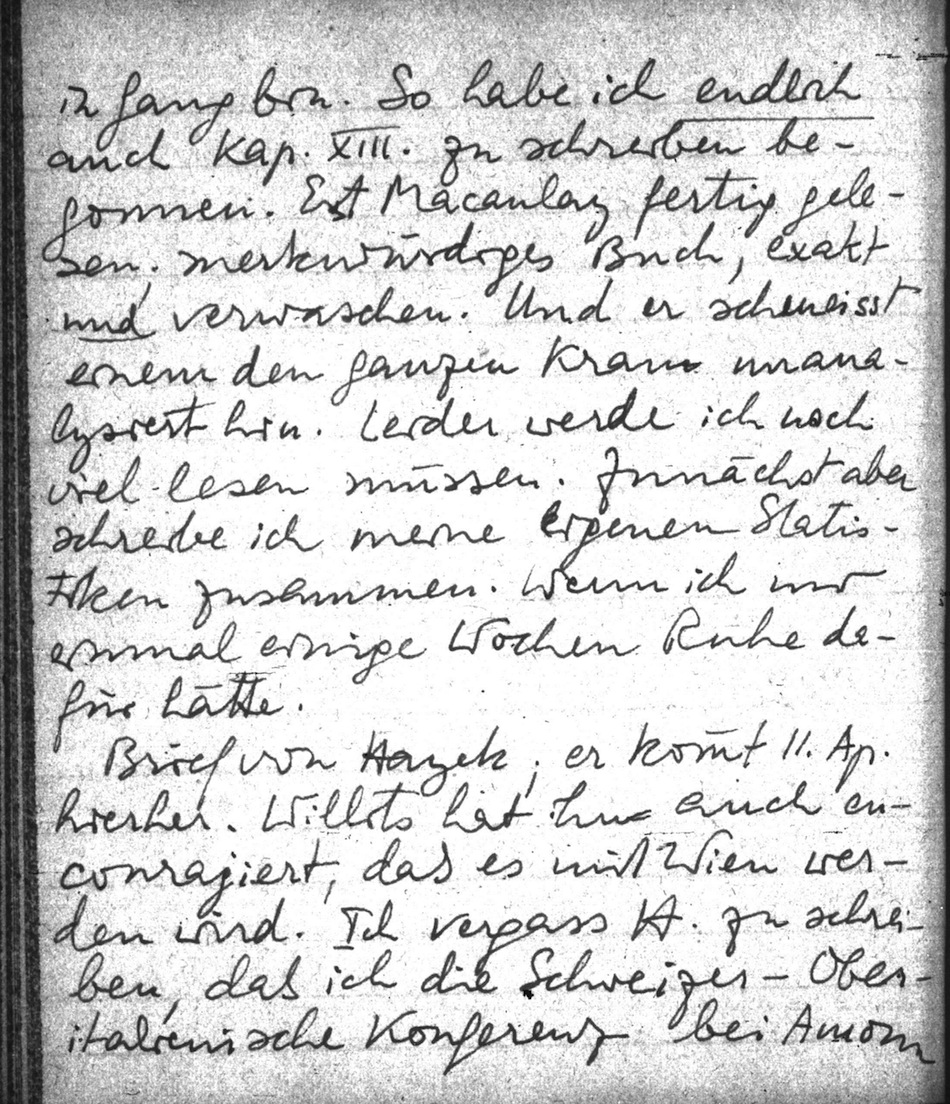 in Gang bin. So habe ich endlich
auch Kap. XIII. zu schreiben be-
gonnen. Erst Macaulay fertig gele-
sen; merkwürdiges Buch, exakt
und verwaschen. Und er schmeisst
einem den ganzen Kram unana-
lysiert hin. Leider werde ich noch
viel lesen müssen. Zunächst aber
schreibe ich meine eigenen Statis-
tiken zusammen. Wenn ich nur
einmal einige Wochen Ruhe da-
für hätte.
Brief von Hayek; er kom̄t 11. Ap.
hierher. Willits hat ihn auch en-
couragiert, daß es mit Wien wer-
den wird. Ich vergass H. zu schrei-
ben, daß ich die Schweizer-Ober-
italienische Konferenz bei Amonn